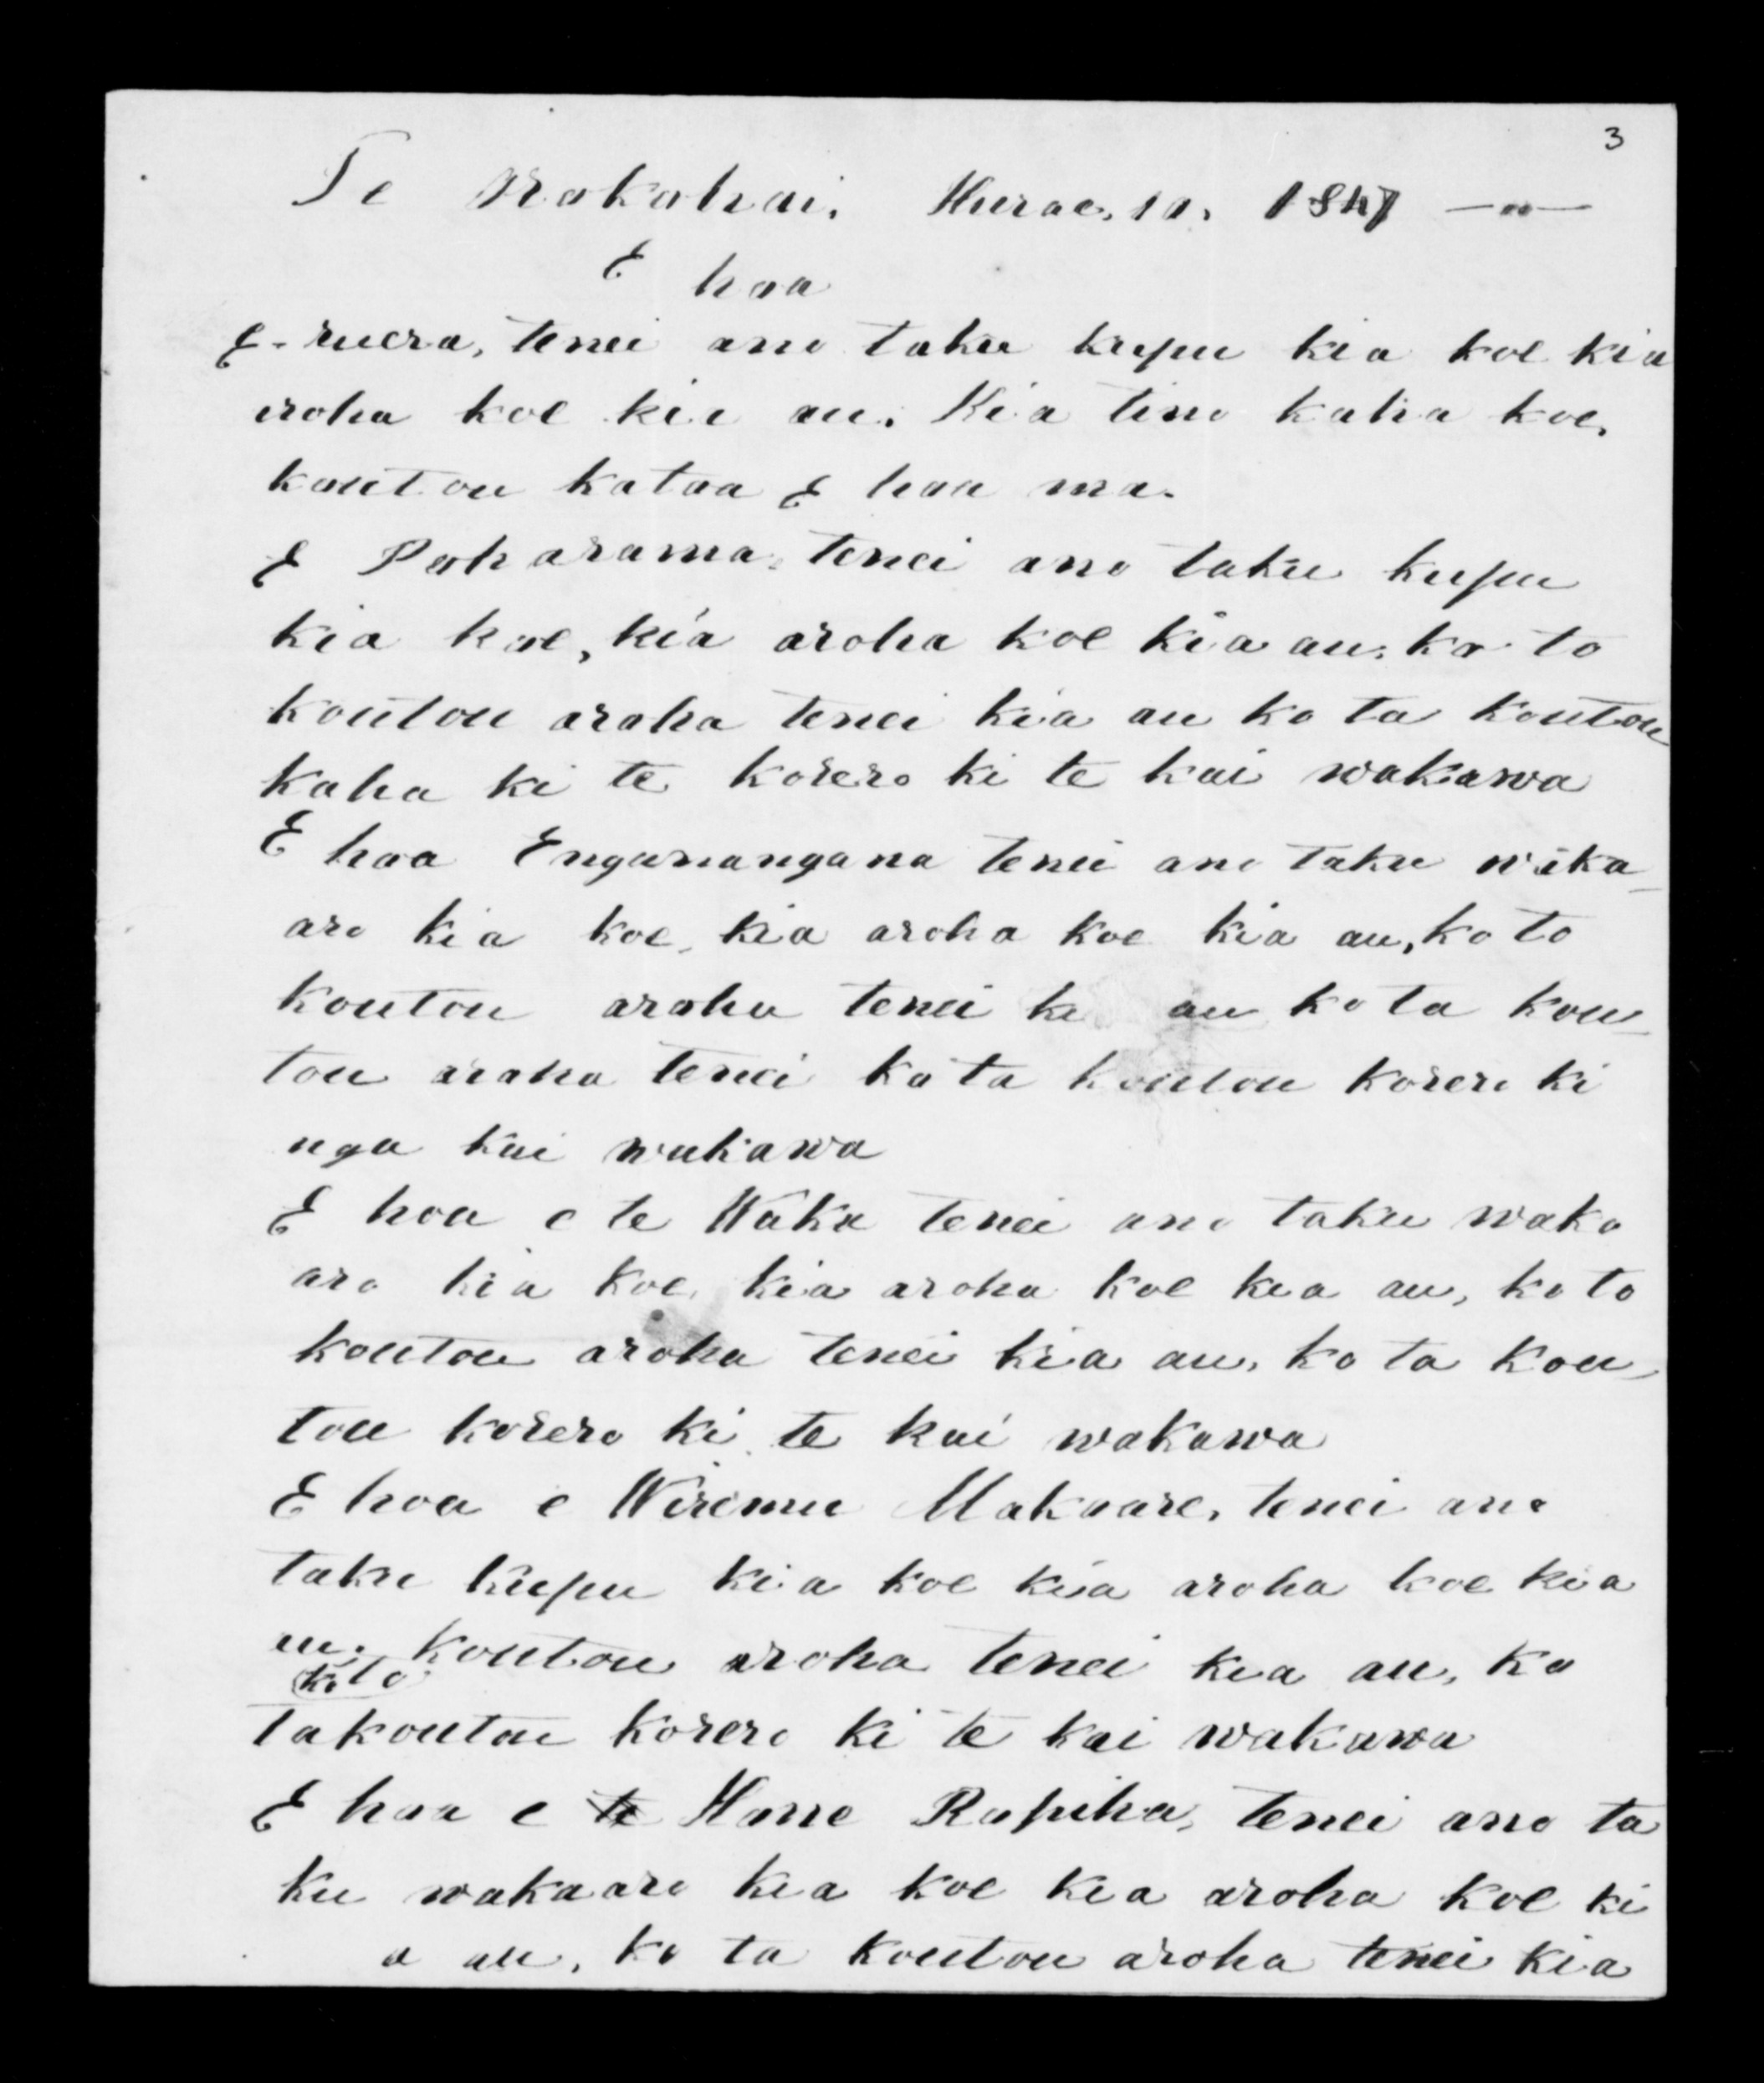 3
Te Hurae. 10. 1847
E hoa
E. ruera, tenei ano taku kupu kia koe kia
aroha koe kia au. Kia tino kaha koe,
koutou katoa E hoa ma.
E Poharama, tenei ano taku kupu
kia koe, kia aroha koe kia au. ko to
koutou aroha tenei kia au ko ta koutou
kaha ki te korero ki te kai wakawa
E hoa Enganangana tenei ano taku waka
aro kia koe, kia aroha koe kia au, ko to
koutou aroha tenei ki au ko ta kou
tou aroha tenei ko ta koutou korero ki
nga kai wakawa
E hoa e te Waka tenei ano taku waka
aro kia koe, kia aroha koe kia au, ko to
koutou aroha tenei kia au, ko ta kou
tou korero ki te kai wakawa
E hoa e Wiremu Makoare, tenei ano
taku kupu kia koe kia aroha koe kia
au. koutou aroha tenei kia au, ko
ko to
takoutou korero ki te kai wakawa
E hoa e te Hone Ropiha, tenei ano ta
ku wakaaro kia koe kia aroha koe ki
a au, ko ta koutou aroha tenei kia